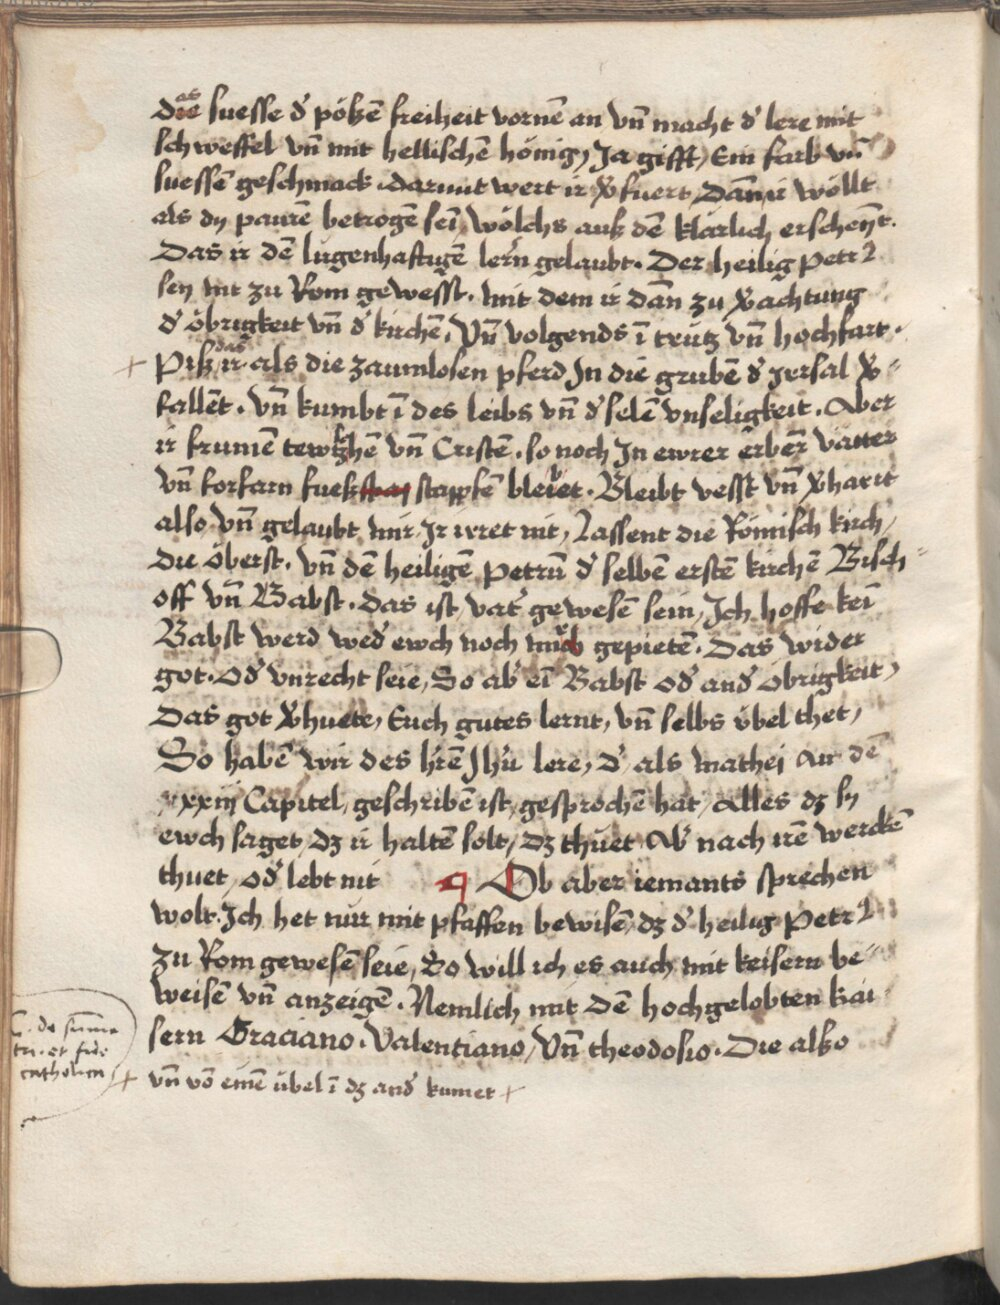 as
die suesse d̕ pöß̄e freiheit vornē an vn̄ macht d̕ lere mit
schweffel vn̄ mit hellischē hönig, Ja gifft, Ein farb vn̄
suessen̄ geschmack. darmit wert ir v̕fuert, Dan̄ ir wöllt
als dÿ paurē betrogē sei, wölchs auß dē klärlich erscheyn̄t.
Das ir dē lugenhafftigē lern̄ gelaubt. Der heilig Petr9
sey nit zu Rom gewesst. mit dem ir dan̄ zu v̕achtung
d̕ öbrigkeit vn̄ d̕ kirchē, Vn̄ volgends ī trutz vn̄ hochfart.
das
+ Piß ir als die zaumlosen pferd In die grubē d̕ irrsal v̕=
fallēt. vn̄ kumbt ī des leibs vn̄ d̕ selē vnseligkeit. Aber
ir frumē tewtzhē vn̄ Cristē. so noch In ewrer erberr̄ vätter
vn̄ forfarn fueß stapfē bleibet. Bleibt vesst vn̄ v̕harrt
also vn̄ gelaubt mir, Ir irret nit, Lassent die Römisch kirch,
die öberst. vn̄ dē heiligē Petrū d̕ selbē erstē kirchē Bisch=
off vn̄ Babst. das ist vat̕ gewesē sein, Ich hoffe kei
Babst werd wed̕ ewch noch mich gepietē. Das wider
got. od̕ vnrecht seie, So ab̕ ei Babst od̕ and̕ öbrigkeit,
Das got v̕huete, Euch gutes lernt, vn̄ selbs übel thet,
So habē wir des hrē̄ Jhū lere, d̕ als mathei An dē
xxiij Capitel, geschribē ist, gesprochē hat, Alles dz sy
ewch saget, dz ir haltē solt, dz thuet Ab̕ nach irē werckē
thuet, od̕ lebt nit ¶ Ob aber iemants sprechen
wolt. Ich het nur mit pfaffen bewisē, dz d̕ heilig Petr9
zu Rom gewesē seie, So will ich es auch mit keisern be=
weisē vn̄ anzeigē. Nemlich mit dē hochgelobten kai=
sern Graciano. Valentiano, Vn̄ theodosio. Die also
+ vn̄ vō einē übel ī dz and̕ kumet +
C. de sum̄a
tri. et fide
catholica